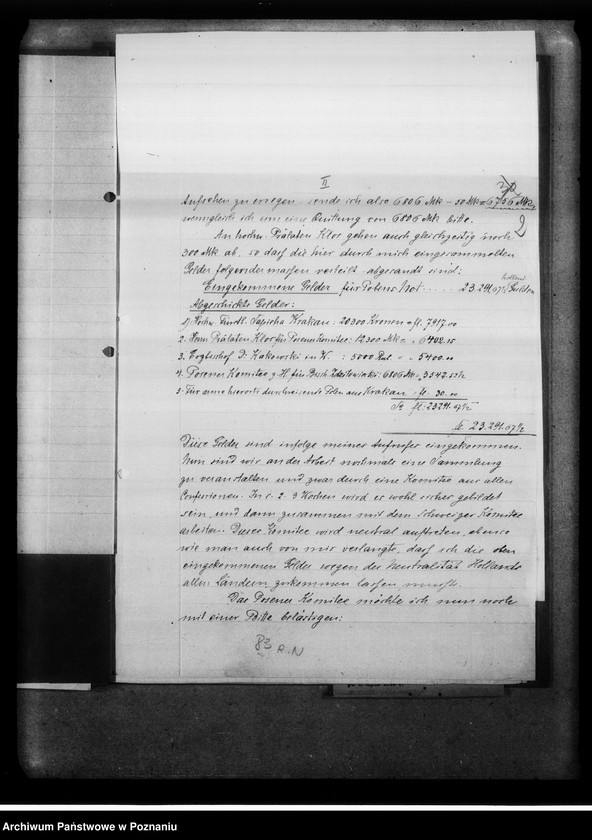 II
2
Aufsehen zu erregen sende ich also 6806 Mk – 50 Mk = 6756 Mk,
wenngleich ich um eine Quittung von 6806 Mk bitte.
An hochw. Prälaten Klos gehen auch gleichzeitig noch
300 Mk ab, so daß die hier durch mich eingesammelten
Gelder folgender massen verteilt abgesandt sind:
Eingekommene Gelder für Polens Not ..... 23.241.07½ holländ. Gulden
Abgeschickte Gelder:
1) Hochw. Fürstb. Sapieha Krakau: 20300 Kronen = fl. 7917.00
2. Herrn Prälaten Klos für Posener Komitee: 12300 Mk = „ 6402.15
3. Erzbischof D. Kakowski in W. : 5000 Rub = „ 5400.00
4. Posener Komitee z. H. für Bisch. Zdzitowiecki: 6806 Mk = 3542.52½
5. Für arme hierorts durchreisende Polen aus Krakau : fl. 30.00
Sa fl: 23241.07½
fl. 23.241.07½
Diese Gelder sind infolge meines Aufrufes eingekommen.
Nun sind wir an der Arbeit nochmals eine Sammlung
zu veranstalten und zwar durch eine Komitee aus allen
Confessionen. In c. 2-3 Wochen wird es wohl sicher gebildet
sein, und dann zusammen mit dem Schweizer Komitee
arbeiten. Diese Komitee wird neutral auftreten, ebenso
wie man auch von mir verlangte, daß ich die oben
eingekommenen Gelder wegen der Neutralität Hollands
allen Ländern zukommen lassen musste.
Das Posener Komitee möchte ich nun noch
mit einer Bitte belästigen:
83 R.N
Archiwum Państwowe w Poznaniu